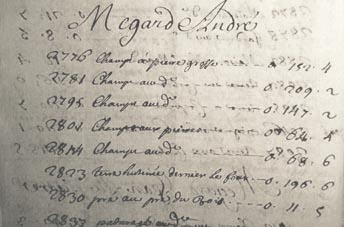 Megard André
2776 Champ à pierre grosse 0. 152. 4
2781 Champ audt 0. 209. 2
2795 Champ audt 0. 147. 2
2801 Champ aux pierres 0. 64. 5
2814 Champ audt 0. 68. 6
2823 derrier le four 0. 196. 6
2830 pré au pré du Bois 0. 11. 5
2837 paturage audt